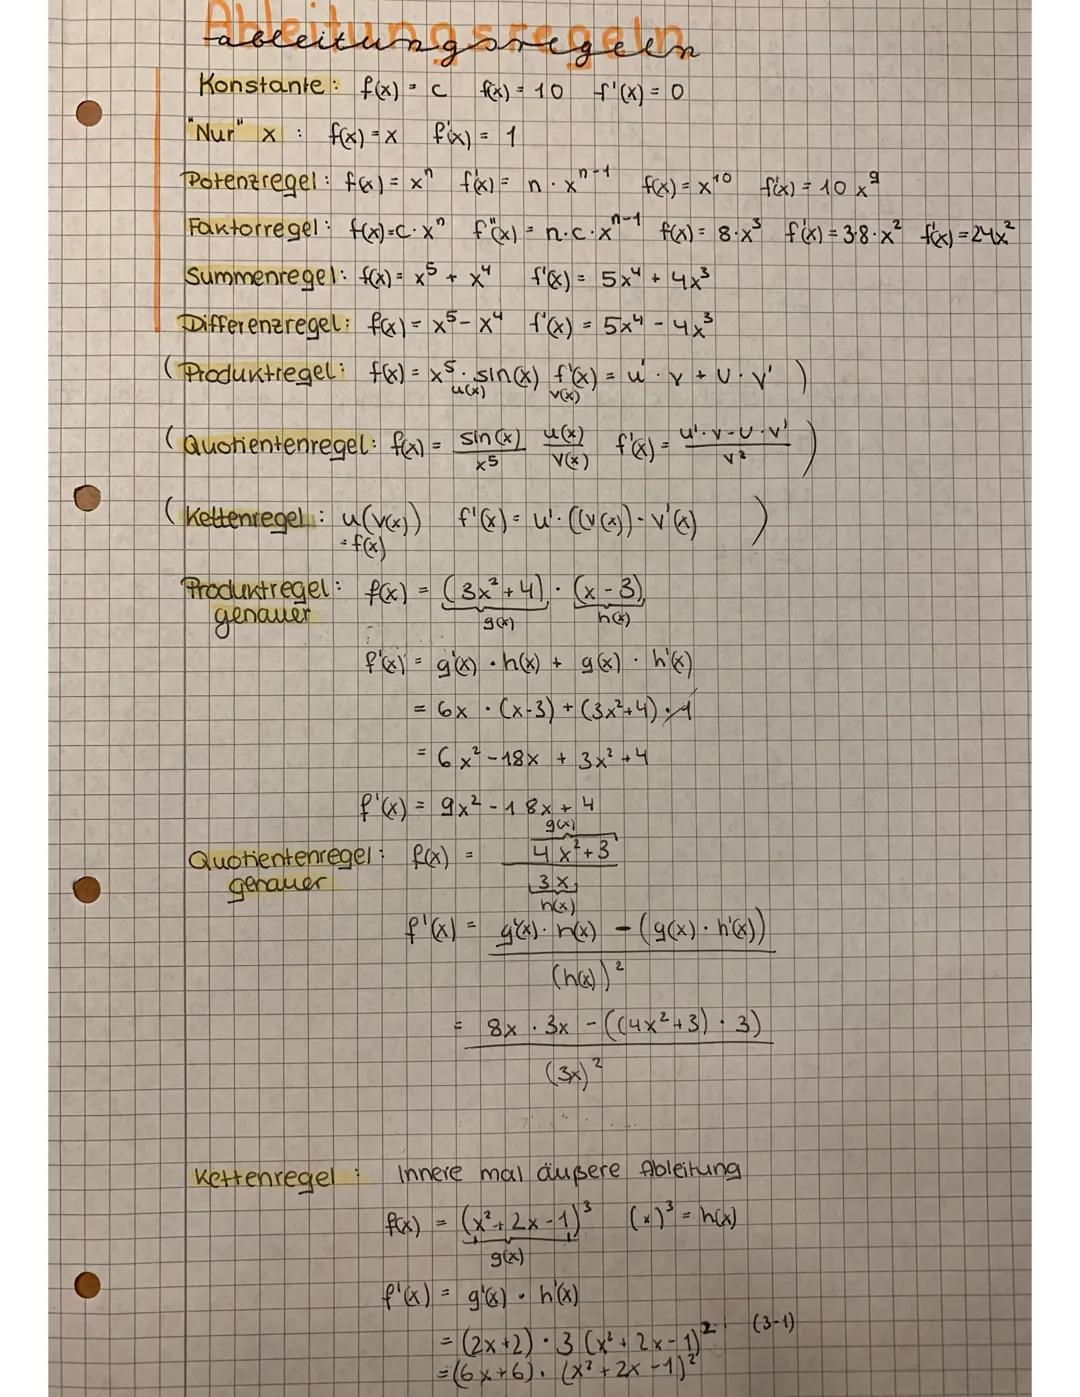 Ableitungsregeln
ableitungsregeln
Konstante: f(x) = c f(x) = 10 f'(x) = 0
"Nur" x : f(x) = x f'(x) = 1
Potenzregel: f(x) = x^n f'(x) = n · x^{n-1} f(x) = x^{10} f'(x) = 10 x^9
Faktorregel: f(x)=c·x^n f''(x) = n·c·x^{n-1} f(x) = 8·x^3 f'(x) = 3·8·x^2 f'(x) = 24x^2
Summenregel: f(x) = x^5 + x^4 f'(x) = 5x^4 + 4x^3
Differenzregel: f(x) = x^5 - x^4 f'(x) = 5x^4 - 4x^3
(Produktregel: f(x) = x^5 · sin(x) f'(x) = u' · v + u · v' )
u(x) v(x)
(Quotientenregel: f(x) = sin(x)/x^5 u(x)/v(x) f'(x) = (u'·v-u·v')/v^2 )
(Kettenregel: u(v(x)) f'(x) = u'·((v(x)) · v'(x) )
= f(x)
Produktregel: f(x) = (3x^2+4) · (x-3)
genauer g(x) h(x)
f'(x) = g'(x) · h(x) + g(x) · h'(x)
= 6x · (x-3) + (3x^2+4) · 1
= 6x^2 - 18x + 3x^2 + 4
f'(x) = 9x^2 - 18x + 4
g(x)
Quotientenregel: f(x) = (4x^2+3)/(3x)
genauer
h(x)
f'(x) = (g'(x) · h(x) - (g(x) · h'(x)))/(h(x))^2
= (8x · 3x - ((4x^2+3) · 3))/(3x)^2
Kettenregel: Innere mal äußere Ableitung
f(x) = (x^2+2x-1)^3 (x)^3 = h(x)
g(x)
f'(x) = g'(x) · h'(x)
= (2x+2) · 3 (x^2+2x-1)^2 (3-1)
= (6x+6) · (x^2+2x-1)^2